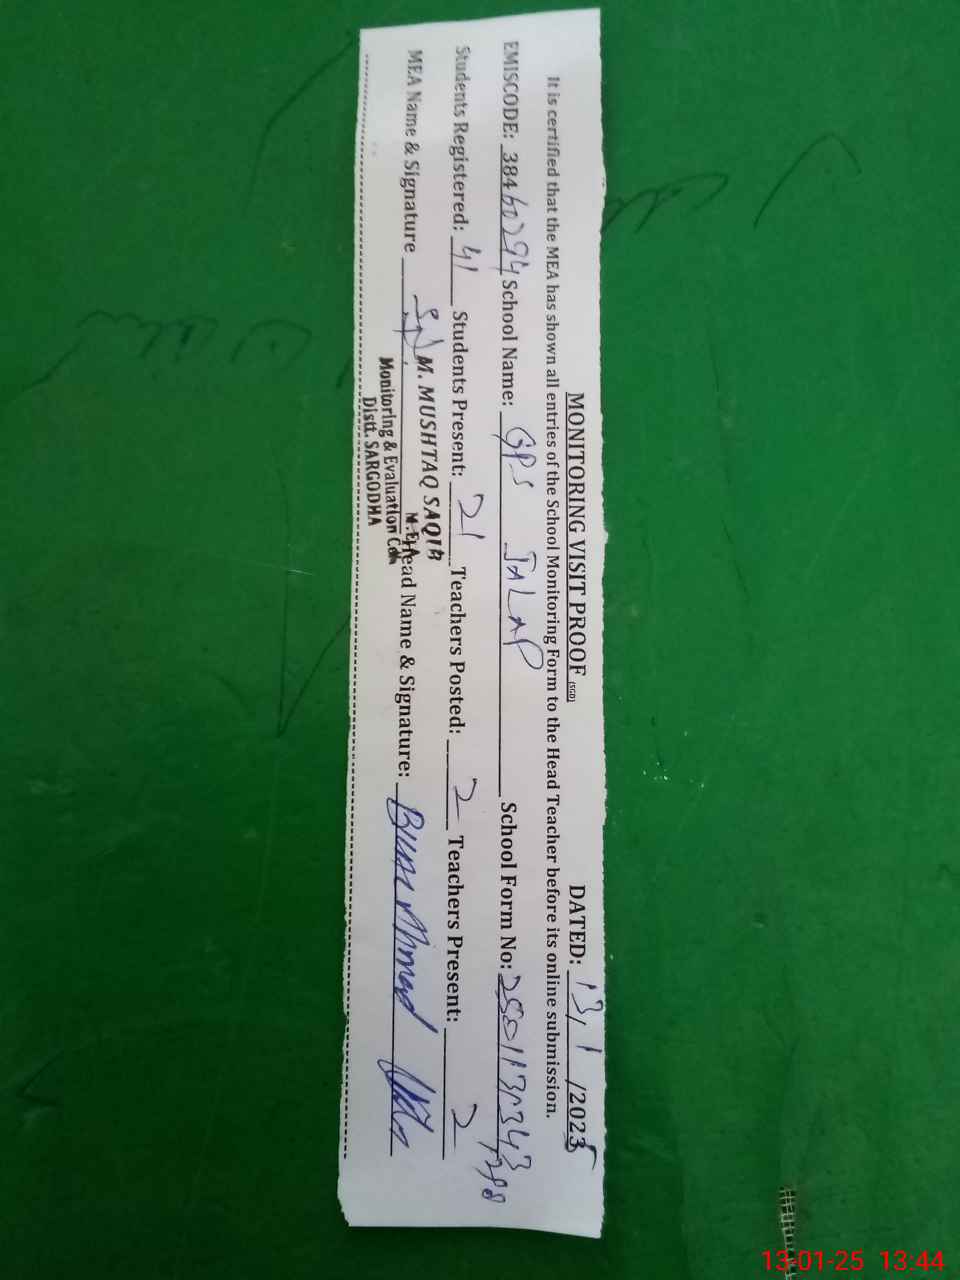 MONITORING VISIT PROOF (SGD) DATED: 13/1/2025
It is certified that the MEA has shown all entries of the School Monitoring Form to the Head Teacher before its online submission.
EMISCODE: 38460294 School Name: GPS JALAP School Form No:
Students Registered: 41 Students Present: 21 Teachers Posted: 2 Teachers Present: 2
MEA Name & Signature Head Name & Signature: Ahmad
M. MUSHTAQ SAQIB
M.E.A
Monitoring & Evaluation
Distt. SARGODHA
13-01-25 13:44